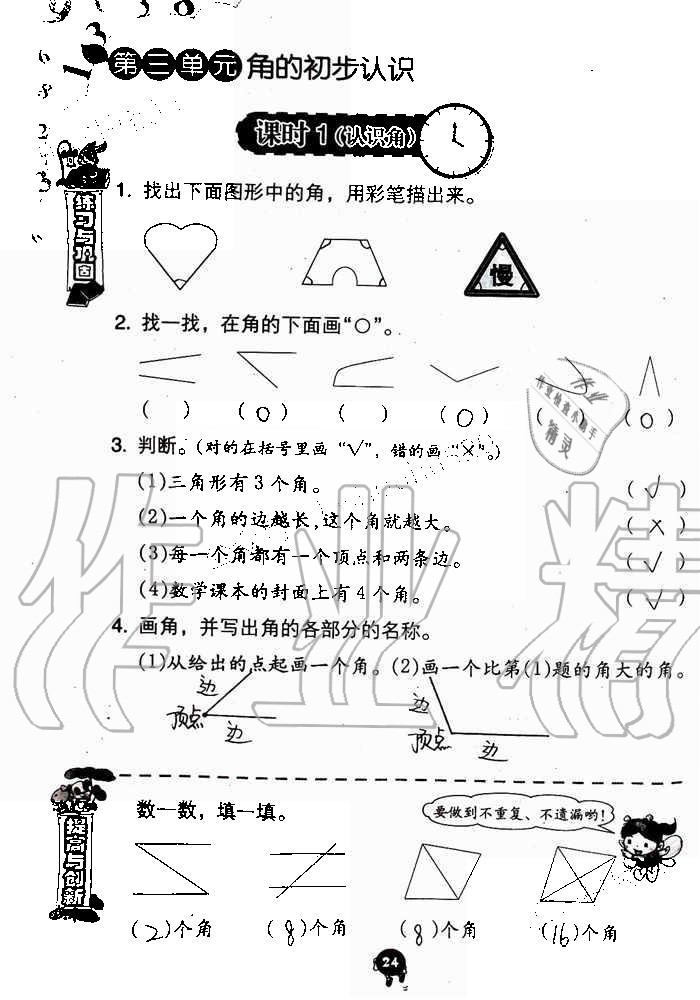 第三单元 角的初步认识
课时1(认识角)
练习与巩固
1. 找出下面图形中的角，用彩笔描出来。
慢
2. 找一找，在角的下面画“○”。
( ) (○) ( ) (○) ( (○)
3. 判断。(对的在括号里画“√”，错的画“×”。)
(1)三角形有3个角。 (√)
(2)一个角的边越长，这个角就越大。 (×)
(3)每一个角都有一个顶点和两条边。 (√)
(4)数学课本的封面上有4个角。 (√)
4. 画角，并写出角的各部分的名称。
(1)从给出的点起画一个角。(2)画一个比第(1)题的角大的角。
边
顶点 边
顶点 边
提高与创新
数一数，填一填。
要做到不重复、不遗漏哟!
(2)个角 (8)个角 (8)个角 (16)个角
24
作业精
作业
作业检查小助手
精灵